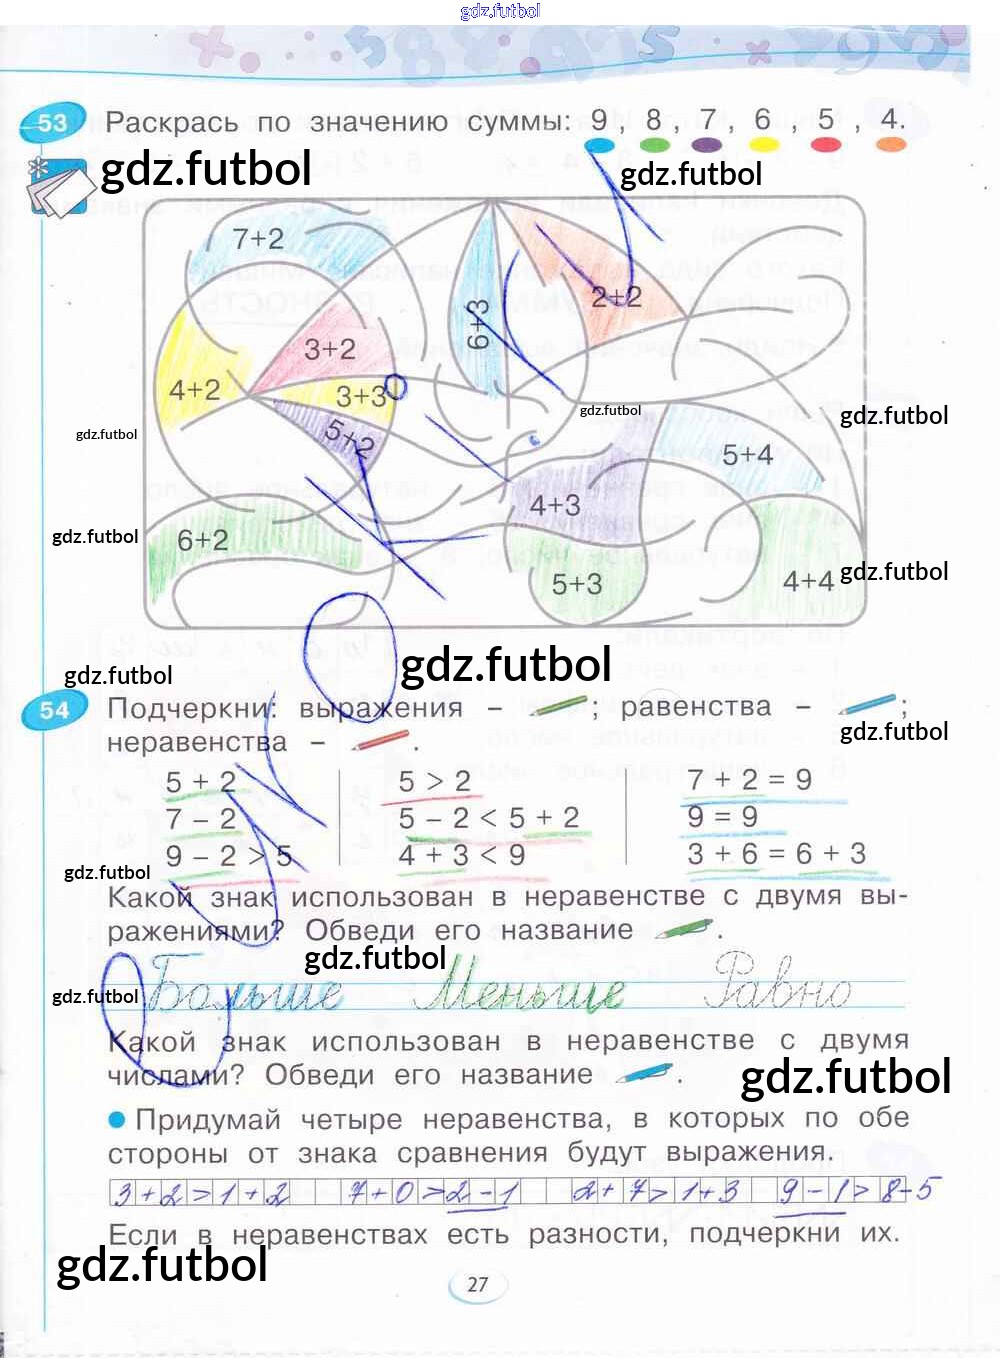 gdz.futbol
53 Раскрась по значению суммы: 9, 8, 7, 6, 5, 4.
gdz.futbol
gdz.futbol
7+2
6+3
2+2
3+2
4+2
3+3
gdz.futbol
gdz.futbol
gdz.futbol
5+2
5+4
4+3
gdz.futbol
6+2
5+3
4+4
gdz.futbol
gdz.futbol
gdz.futbol
54 Подчеркни: выражения – ; равенства – ;
gdz.futbol
неравенства – .
5 + 2
5 > 2
7 + 2 = 9
7 – 2
5 – 2 < 5 + 2
9 = 9
9 – 2 > 5
4 + 3 < 9
3 + 6 = 6 + 3
gdz.futbol
Какой знак использован в неравенстве с двумя вы-
ражениями? Обведи его название .
gdz.futbol
gdz.futbol
Больше Меньше Равно
Какой знак использован в неравенстве с двумя
числами? Обведи его название .
gdz.futbol
Придумай четыре неравенства, в которых по обе
стороны от знака сравнения будут выражения.
3+2>1+2 7+0>2-1 2+7>1+3 9-1>8-5
Если в неравенствах есть разности, подчеркни их.
gdz.futbol
27